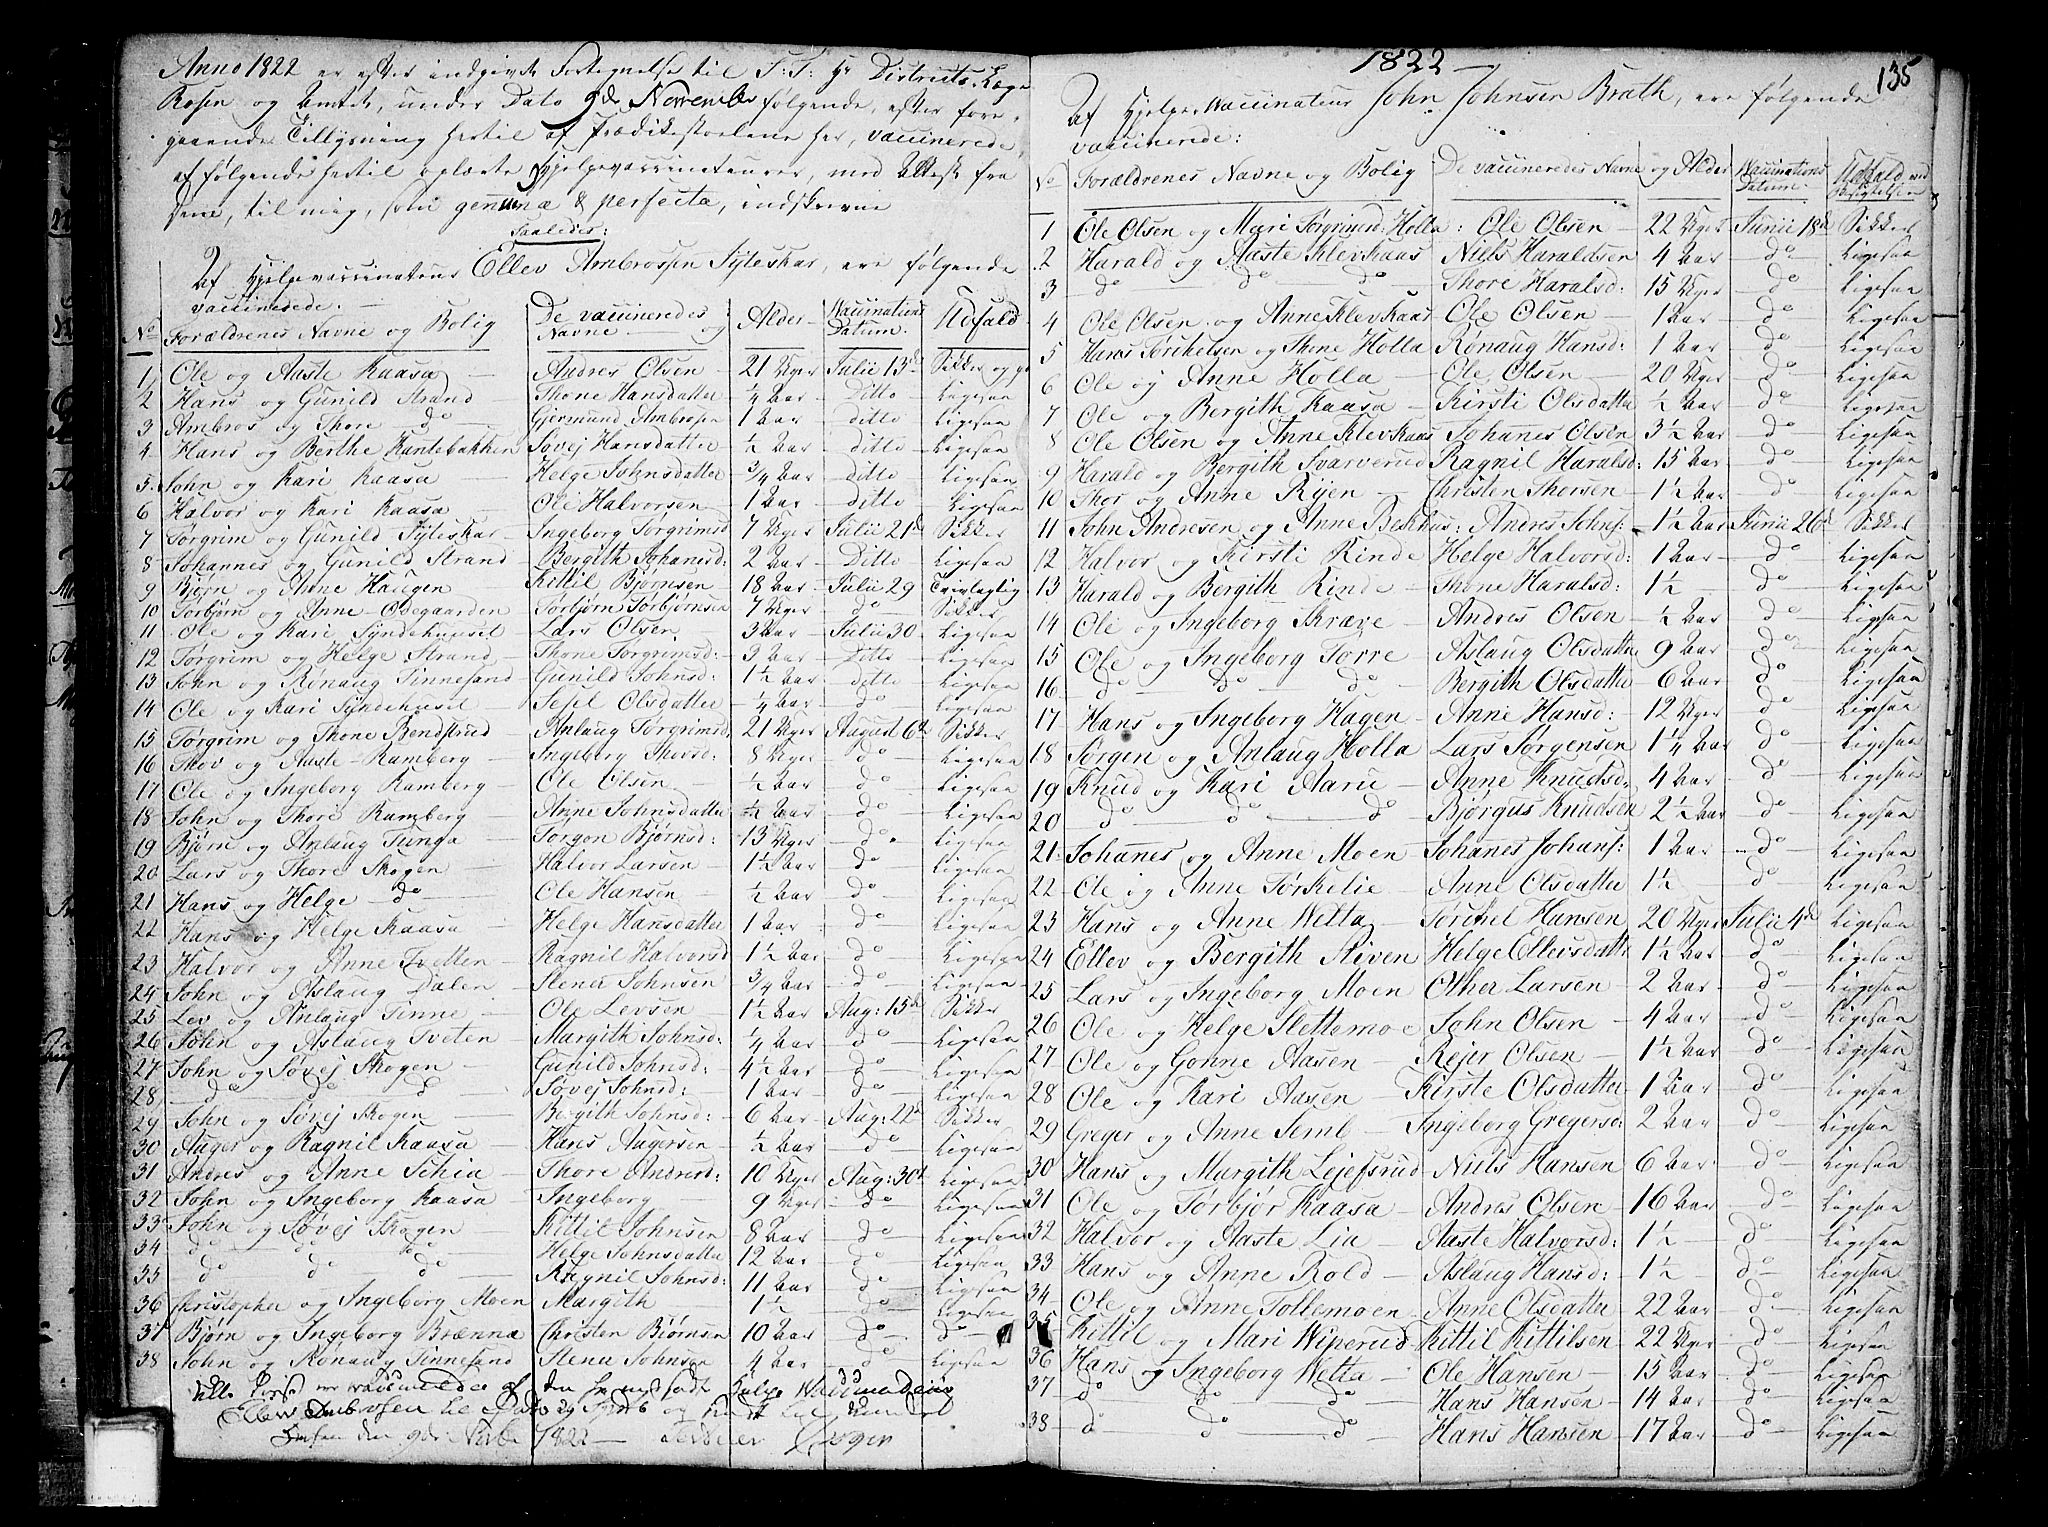 Anno 1822 er efter indgivet Fortegnelse til S: T: Hr Districts Læge
Rosen og Amtet, under Dato 9de November følgende, efter fore-
gaaende Tillysning hertil af Prædikestoelene her, vaccinerede
af følgende hertil oplærte Hjelpevaccinateurer, med Attest fra
dem, til mig, som genuinæ & perfecta, indskrevne
saaledes:
Af Hjelpevaccinateur Ellev Ambrossen Sylteskar, ere følgende
vaccinerede. —
No Forældrenes Navne og Bolig De vaccineredes Navne og Alder Vaccinations Datum. Udfald
1 Ole og Aaste Kaasa — Andres Olsen — 21 Uger Julii 13d Sikker og
2 Hans og Gunild Strand — Thone Hansdatter ¼ Aar Ditto Ligesaa
3 Ambros og Thore do — Giermund Ambrosen 1 Aar ditto Ligesaa
4 Hans og Berthe Kantebakken Søvej Hansdatter ½ Aar ditto Ligesaa
5 John og Kari Kaasa — Helge Johnsdatter ¾ Aar Ditto Ligesaa
6 Halvor og Kari Kaasa — Ole Halvorsen 1 Aar ditto Ligesaa
7 Tørgrim og Gunild Sylteskar — Ingeborg Torgrimsd 7 Uger Julii 21d Sikker
8 Johannes og Gunild Strand Bergith Johansd: 2 Aar Ditto Ligesaa
9 Bjørn og Anne Haugen Kittil Bjørnsen 18 Aar Julii 29 Tvivlagtig
10 Torbjørn og Anne Ødegaarden Torbjørn Torbjørnsen 7 Uger do Sikker
11 Ole og Kari Syndehuuset Lars Olsen — 3 Aar Julii 30 Ligesaa
12 Tørgrim og Helge Strand — Thone Torgrimsd: 3 Aar Ditto Ligesaa
13 John og Rønaug Tinnesand — Gunild Johnsd: 1½ Aar ditto Ligesaa
14 Ole og Kari Syndehuset — Sejel Olsdatter ¼ Aar do Ligesaa
15 Tørgrim og Thone Bendstrud — Anlaug Torgrimsd 21 Uger August 6d Sikker
16 Thov og Aaste Ramberg — Ingeborg Thovsd: 8 Uger do Ligesaa
17 Ole og Ingeborg Ramberg — Ole Olsen — ½ Aar do Ligesaa
18 John og Thore Ramberg — Anne Johnsdatter ½ Aar do Ligesaa
19 Bjørn og Anlaug Tunga — Torgon Bjørnsd: 13 Uger do Ligesaa
20 Lars og Thore Skogen — Halvor Larsen — 1½ Aar do Ligesaa
21 Hans og Helge — do — Ole Hansen — ½ Aar do Ligesaa
22 Hans og Helge Kaasa — Helge Hansdatter 1 Aar do Ligesaa
23 Halvor og Anne Tvetten — Ragnil Halvorsd 1½ Aar do Ligesaa
24 John og Aslaug Dalen — Stener Johnsen ¾ Aar do Ligesaa
25 Lev og Anlaug Tinne — Ole Levsen — 1½ Aar Aug: 15de Sikker
26 John og Aslaug Tveten — Margith Johnsd: ¼ Aar do Ligesaa
27 John og Søvej Skogen — Gunild Johnsd: 4½ Aar do Ligesaa
28 — do — do — do Søvej Johnsd: 1 Aar do Ligesaa
29 John og Søvej Skogen Bergith Johnsd: 6 Aar Aug: 22d Sikker
30 Auger og Ragnil Kaasa — Hans Augersen — ½ Aar do Ligesaa
31 Andres og Anne Schia — Thore Andresd: 10 Uger Aug: 30d Ligesaa
32 John og Ingeborg Kaasa — Ingeborg — 9 Uger do Ligesaa
33 John og Søvej Skogen — Kittil Johnsen 8 Aar do Ligesaa
34 do — do — do — Helge Johnsdatter 12 Aar do Ligesaa
35 do — do — do — Ragnil Johnsd: 11 Aar do Ligesaa
36 Christopher og Ingeborg Moen Margith — 1½ do Ligesaa
37 Bjørn og Ingeborg Brænna Christen Bjørnsen 10 Aar do — do —
38 John og Rønaug Tinnesand Stener Johnsen 4 Aar do Ligesaa
den 9de 1822 —
1822 — 135
Af Hjelpe Vaccinateur John Johnsen Brath, ere følgende
vaccinerede:
No Forældrenes Navne og Bolig De vaccineredes Navne og Alder Vaccinations Datum. Udfald ved Besigtelsen
1 Ole Olsen og Mari Tørgrimsd: Holla: Ole Olsen — 22 Uger Junii 18d Sikker
2 Harald og Aaste Klevkaas Niels Haraldsen 4 Aar do Ligesaa
3 — do — do — do — Thore Haralsd: 15 Uger do Ligesaa
4 Ole Olsen og Anne Klevkaas Ole Olsen — 1 Aar do Ligesaa
5 Hans Tørchelsen og Thone Holla Rønaug Hansd: 1 Aar do Ligesaa
6 Ole og Anne Holla — Ole Olsen — 20 Uger do Ligesaa
7 Ole og Bergith Kaasa — Kirsti Olsdatter ½ Aar do Ligesaa
8 Ole Olsen og Anne Klevkaas Johanes Olsen 3½ Aar do Ligesaa
9 Harald og Bergith Svarverud Ragnil Haralsd: 15 Aar do Ligesaa
10 Thor og Anne Rijen — Christen Thorsen — 1½ Aar do Ligesaa
11 John Andresen og Anne Beskhus: Andres Johns: 1½ Aar Junii 26d Sikker
12 Halvor og Kirsti Rinde Helge Halvorsd: 1 Aar — do Ligesaa
13 Harald og Bergith Rinde — Thone Haralsd: 1½ — do Ligesaa
14 Ole og Ingeborg Kræve — Andres Olsen ½ Aar — do Ligesaa
15 Ole og Ingeborg Torre — Aslaug Olsdatter 9 Aar — do Ligesaa
16 — do — do — do — Bergith Olsdatter 6 Aar do Ligesaa
17 Hans og Ingeborg Hagen — Anne Hansd: — 12 Uger do Ligesaa
18 Jørgen og Anlaug Holla — Lars Jørgensen 1¼ Aar do Ligesaa
19 Knud og Kari Aarie — Anne Knudsd: 4 Aar — do — Ligesaa
20 — do — do — do Bjørgus Knudsen 2½ Aar do Ligesaa
21 Johanes og Anne Moen — Johanes Johans: 1 Aar — do — Ligesaa
22 Ole og Anne Tørkelie — Anne Olsdatter 1½ — do Ligesaa
23 Hans og Anne Wetta — Tørchel Hansen 20 Uger Julii 4d Ligesaa
24 Ellev og Bergith Stiven Helge Ellevsdatt 1½ Aar do Ligesaa
25 Lars og Ingeborg Moen Other Larsen 2 Aar — do Ligesaa
26 Ole og Helge Slettemoe John Olsen — 4 Aar — do Ligesaa
27 Ole og Gonne Aasen — Rejer Olsen — 1½ Aar — do Ligesaa
28 Ole og Kari Aasen — Kirste Olsdatter 1 Aar do Ligesaa
29 Greger og Anne Semb — Ingeborg Gregersd: 2 Aar do Ligesaa
30 Hans og Margith Lejefsrud Niels Hansen 6 Aar do Ligesaa
31 Ole og Tørbjør Kaasa — Andres Olsen — 16 Aar — do Ligesaa
32 Halvor og Aaste Lia — Aaste Halvorsd: 1½ — do — Ligesaa
33 Hans og Anne Rold — Aslaug Hansd: 1½ — do — Ligesaa
34 Ole og Anne Tollemoen — Anne Olsdatter 22 Aar do — Ligesaa
35 Kittil og Mari Wiperud Kittil Kittilsen 22 Uger do Ligesaa
36 Hans og Ingeborg Wetta — Ole Hansen — 15 Aar — do — Ligesaa
37 do do do Hans Hansen — 14 Aar — do — Ligesaa
38 — do — do — do — Hans Hansen — 17 Aar — do — Ligesaa